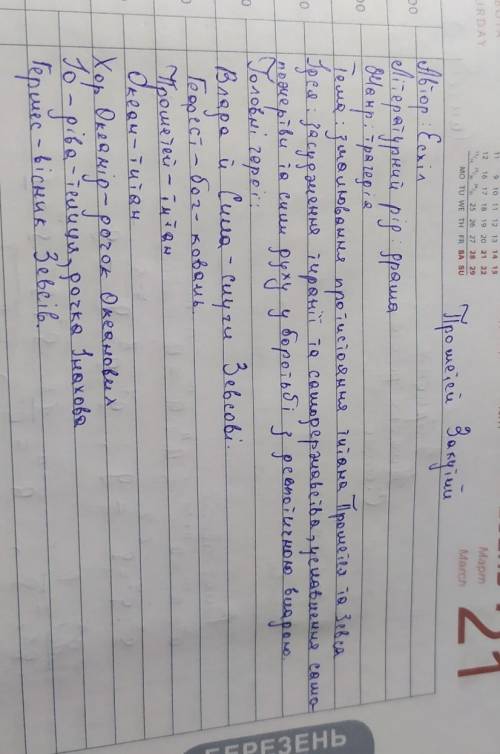 Прометей Закутий
Автор: Есхіл
Літературний рід: драма
Жанр: трагедія
Тема: змалювання протистояння титана Прометея та Зевса
Ідея: засудження тиранії та самодержавства, уславлення само-
пожертви та сили духу у боротьбі з деспотичною владою.
Головні герої:
Влада й Сила - слуги Зевсові.
Гефест - бог-коваль.
Прометей - титан
Океан - титан
Хор Океанід - дочок Океанових
Іо - діва-телиця, дочка Інахова
Гермес - вісник Зевсів.
Март
March
21
БЕРЕЗЕНЬ
MO TU WE TH FR SA SU